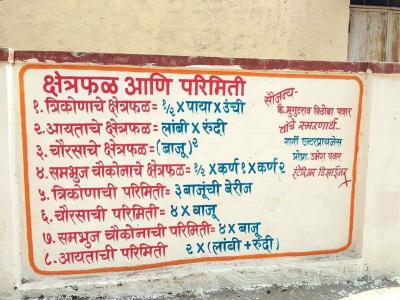 क्षेत्रफळ आणि परिमिती
१. त्रिकोणाचे क्षेत्रफळ= १/२ x पाया x उंची
२. आयताचे क्षेत्रफळ= लांबी x रुंदी
३. चौरसाचे क्षेत्रफळ= (बाजू)२
४. समभुज चौकोनाचे क्षेत्रफळ= १/२ x कर्ण१ x कर्ण २
५. त्रिकोणाची परिमिती= ३बाजूंची बेरीज
६. चौरसाची परिमिती= ४x बाजू
७. समभुज चौकोनाची परिमिती= ४x बाजू
८. आयताची परिमिती २x(लांबी +रुंदी)
सौजन्य-
कै. मुगुटराव विठोबा पवार
यांचे स्मरणार्थ..
गार्गी एन्टरप्रायजेस
प्रोप्रा. उमेश पवार
इंटेरिअर डिझाईनर